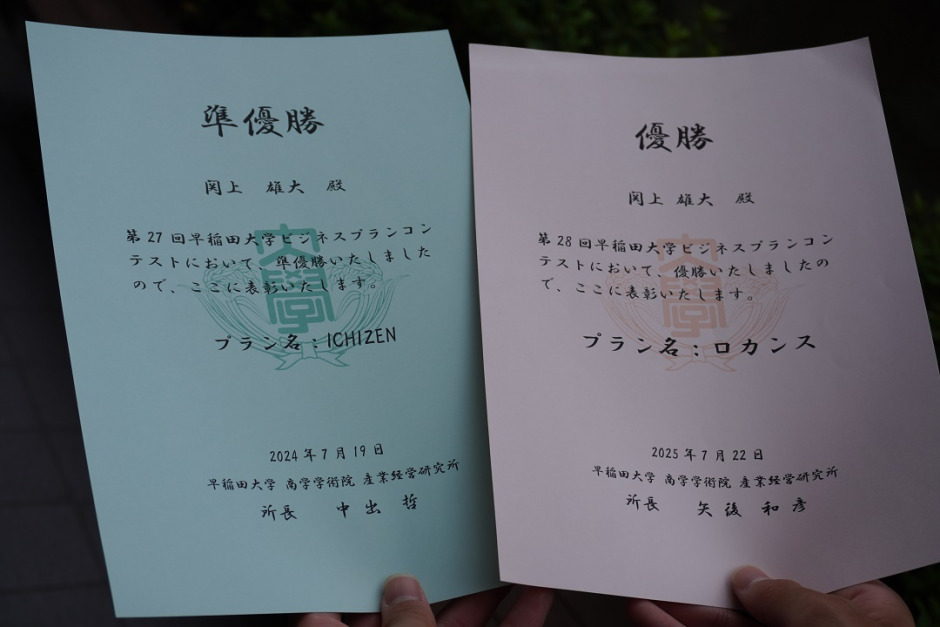 準優勝
関上 雄大 殿
第27回早稲田大学ビジネスプランコン
テストにおいて、準優勝いたしました
ので、ここに表彰いたします。
プラン名：ICHIZEN
2024年7月19日
早稲田大学 商学学術院 産業経営研究所
所長 中出 哲
優勝
関上 雄大 殿
第28回早稲田大学ビジネスプランコン
テストにおいて、優勝いたしましたの
で、ここに表彰いたします。
プラン名：ロカンス
2025年7月22日
早稲田大学 商学学術院 産業経営研究所
所長 矢後 和彦
大學
大學